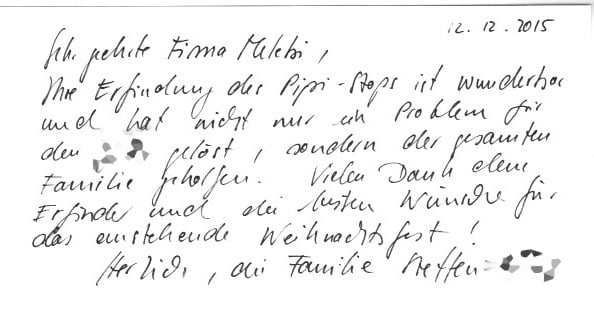 12.12.2015
Sehr geehrte Firma Meletzi,
Ihre Erfindung des Pipi-Stops ist wunderbar
und hat nicht nur ein Problem für
den gelöst, sondern der gesamten
Familie geholfen. Vielen Dank dem
Erfinder und die besten Wünsche für
das anstehende Weihnachtsfest!
Herzlich, die Familie Steffen-